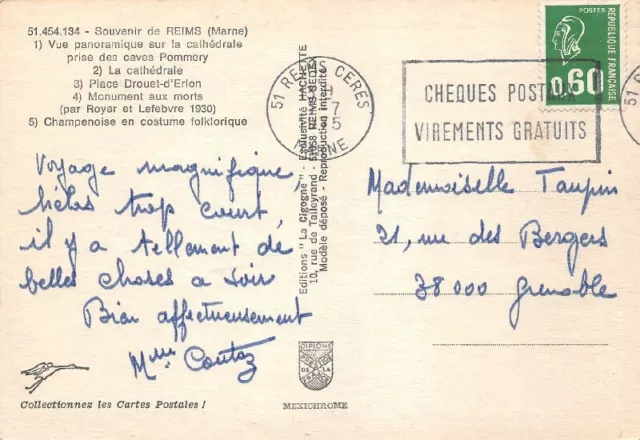 51.454.134 - Souvenir de REIMS (Marne)
1) Vue panoramique sur la cathédrale
prise des caves Pommery
2) La cathédrale
3) Place Drouet-d'Erlon
4) Monument aux morts
(par Royer et Lefebvre 1930)
5) Champenoise en costume folklorique
Voyage magnifique,
hélas trop court,
il y a tellement de
belles choses a voir
Bien affectueusement
Mme Coutaz
Collectionnez les Cartes Postales !
Editions "La Cigogne" - Exclusivité HACHETTE
10, rue de Talleyrand - 51058 REIMS-CEDEX
Modèle déposé - Reproduction interdite
DIPLOME
DE LA
MEXICHROME
51 REIMS CERES
7
5
MARNE
CHEQUES POSTAUX
VIREMENTS GRATUITS
POSTES
0,60
RÉPUBLIQUE FRANÇAISE
51 R
Mademoiselle Taupin
21, rue des Bergers
38000 Grenoble